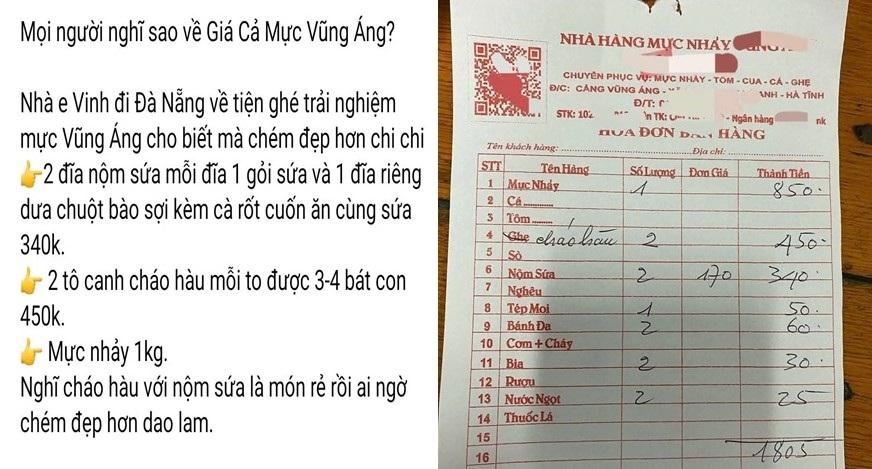 Mọi người nghĩ sao về Giá Cả Mực Vũng Áng?
Nhà e Vinh đi Đà Nẵng về tiện ghé trải nghiệm
mực Vũng Áng cho biết mà chém đẹp hơn chi chi
👉2 đĩa nộm sứa mỗi đĩa 1 gỏi sứa và 1 đĩa riêng
dưa chuột bào sợi kèm cà rốt cuốn ăn cùng sứa
340k.
👉 2 tô canh cháo hàu mỗi to được 3-4 bát con
450k.
👉 Mực nhảy 1kg.
Nghĩ cháo hàu với nộm sứa là món rẻ rồi ai ngờ
chém đẹp hơn dao lam.
NHÀ HÀNG MỰC NHẢY
CHUYÊN PHỤC VỤ: MỰC NHẢY - TÔM - CUA - CÁ - GHẸ
Đ/C: CẢNG VŨNG ÁNG - ANH - HÀ TĨNH
Đ/T: 0
STK: 102 Ngân hàng nk
HÓA ĐƠN BÁN HÀNG
Tên khách hàng: Địa chỉ:
STT Tên Hàng Số Lượng Đơn Giá Thành Tiền
1 Mực Nháy 1 850.
2 Cá
3 Tôm
4 Ghẹ cháo hàu 2 450.
5 Sò
6 Nộm Sứa 2 170 340.
7 Nghêu
8 Tép Moi 1 50.
9 Bánh Đa 2 60.
10 Cơm + Cháy
11 Bia 2 30.
12 Rượu
13 Nước Ngọt 2 25
14 Thuốc Lá
15
16 1805